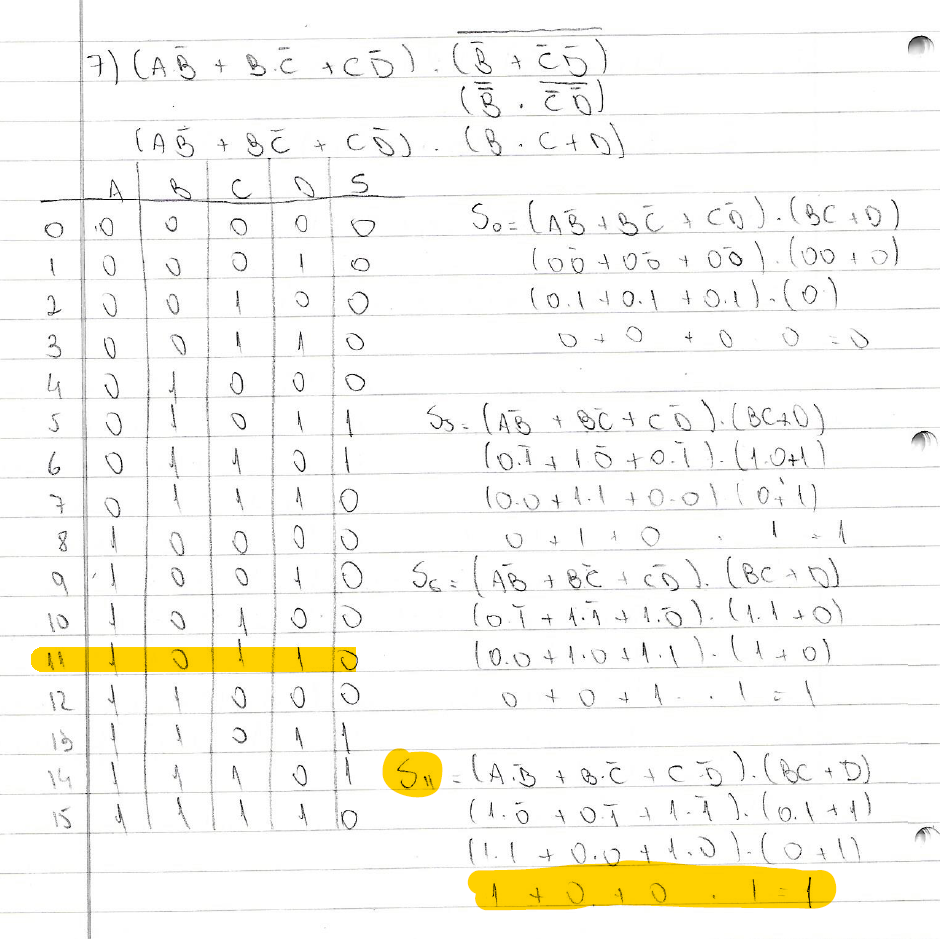 7) (AB̄ + B.C̄ + CD̄) . (B̄ + C̄D̄)‾
(B̿ . C̄D̄‾)
(AB̄ + BC̄ + CD̄) . (B . C + D)
A B C D S
0 0 0 0 0 0
1 0 0 0 1 0
2 0 0 1 0 0
3 0 0 1 1 0
4 0 1 0 0 0
5 0 1 0 1 1
6 0 1 1 0 1
7 0 1 1 1 0
8 1 0 0 0 0
9 1 0 0 1 0
10 1 0 1 0 0
11 1 0 1 1 0
12 1 1 0 0 0
13 1 1 0 1 1
14 1 1 1 0 1
15 1 1 1 1 0
S₀ = (AB̄ + BC̄ + CD̄) . (BC + D)
(00̄ + 00̄ + 00̄) . (00 + 0)
(0.1 + 0.1 + 0.1) . (0)
0 + 0 + 0 0 = 0
S₅ = (AB̄ + BC̄ + CD̄) . (BC + D)
(0.1̄ + 10̄ + 0.1̄) . (1.0+1)
(0.0 + 1.1 + 0.0) (0+1)
0 + 1 + 0 . 1 = 1
S₆ = (AB̄ + BC̄ + CD̄) . (BC + D)
(0.1̄ + 1.1̄ + 1.0̄) . (1.1 + 0)
(0.0 + 1.0 + 1.1) . (1 + 0)
0 + 0 + 1 . 1 = 1
S₁₁ = (A.B̄ + B.C̄ + CD̄) . (BC + D)
(1.0̄ + 0.1̄ + 1.1̄) . (0.1 + 1)
(1.1 + 0.0 + 1.0) . (0 + 1)
1 + 0 + 0 . 1 = 1